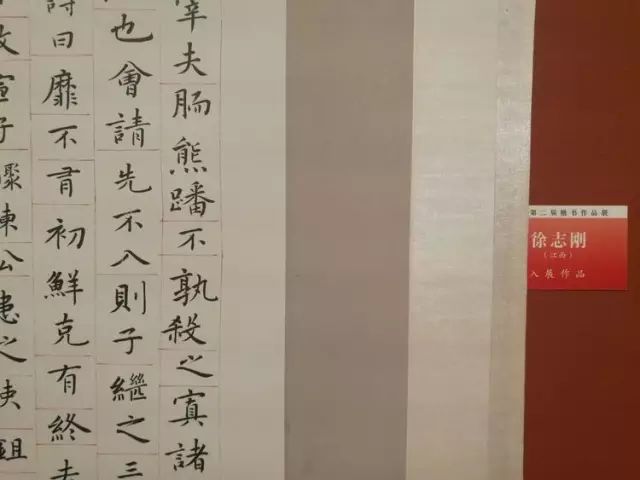 宰夫胹熊蹯不孰殺之寘諸
也會請先不入則子繼之三
詩曰靡不有初鮮克有終夫
改宣子驟諫公患之使鉏
第二届楷书作品展
徐志剛
（江西）
入展作品